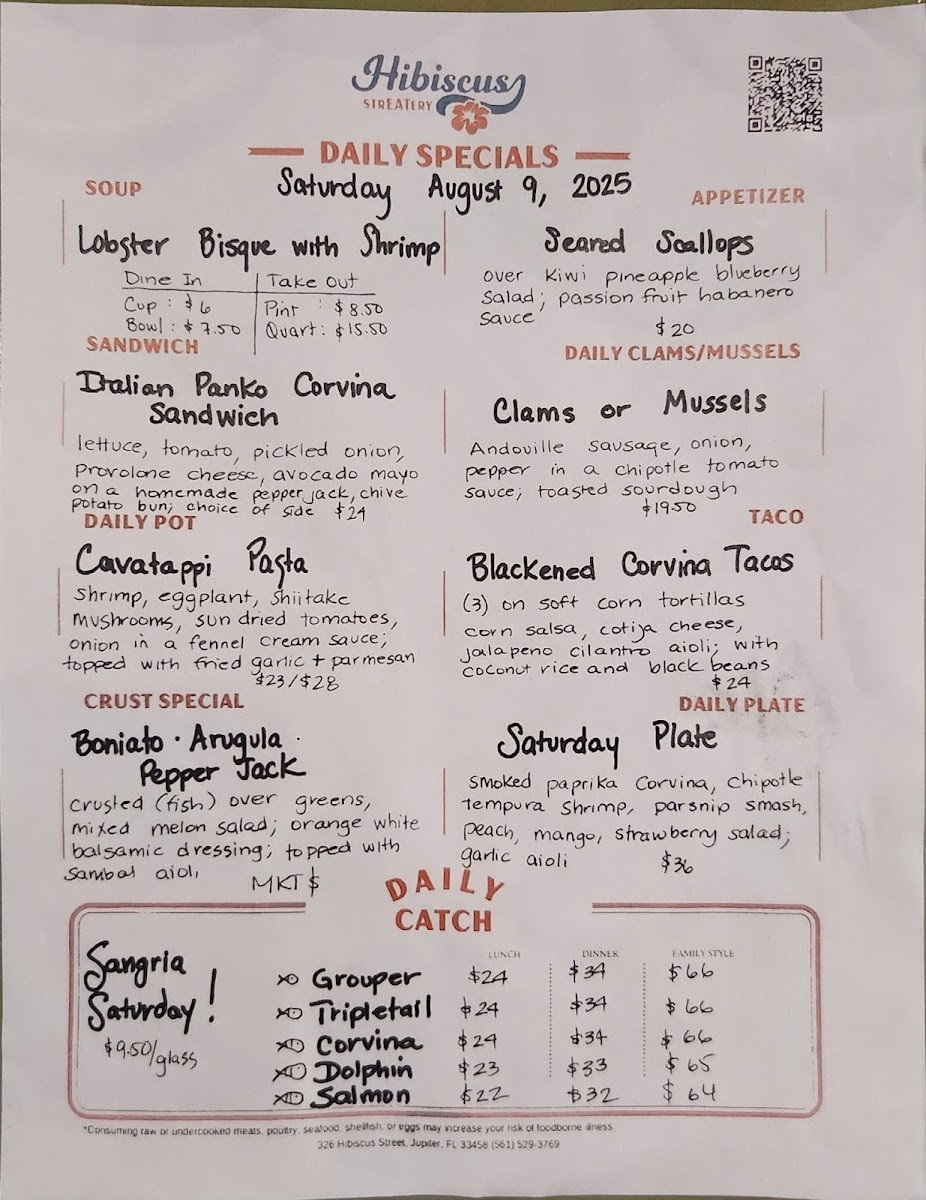 Hibiscus
STREATERY
DAILY SPECIALS
Saturday August 9, 2025
SOUP
Lobster Bisque with Shrimp
Dine In | Take Out
Cup : $6 | Pint : $8.50
Bowl : $7.50 | Quart : $15.50
APPETIZER
Seared Scallops
over Kiwi pineapple blueberry
salad; passion fruit habanero
sauce
$20
SANDWICH
Italian Panko Corvina
Sandwich
lettuce, tomato, pickled onion,
provolone cheese, avocado mayo
on a homemade pepper jack, chive
potato bun; choice of side $24
DAILY CLAMS/MUSSELS
Clams or Mussels
Andouille sausage, onion,
pepper in a chipotle tomato
sauce; toasted sourdough
$19.50
DAILY POT
Cavatappi Pasta
Shrimp, eggplant, shiitake
mushrooms, sun dried tomatoes,
onion in a fennel cream sauce;
topped with fried garlic + parmesan
$23/$28
TACO
Blackened Corvina Tacos
(3) on soft corn tortillas
corn salsa, cotija cheese,
jalapeno cilantro aioli; with
coconut rice and black beans
$24
CRUST SPECIAL
Boniato · Arugula ·
Pepper Jack
crusted (fish) over greens,
mixed melon salad; orange white
balsamic dressing; topped with
sambal aioli
MKT $
DAILY PLATE
Saturday Plate
Smoked paprika Corvina, Chipotle
Tempura Shrimp, parsnip smash,
peach, mango, strawberry salad;
garlic aioli $36
DAILY
CATCH
Sangria
Saturday!
$9.50/glass
LUNCH DINNER FAMILY STYLE
Grouper $24 $34 $66
Tripletail $24 $34 $66
Corvina $24 $34 $66
Dolphin $23 $33 $65
Salmon $22 $32 $64
*Consuming raw or undercooked meats, poultry, seafood, shellfish, or eggs may increase your risk of foodborne illness.
326 Hibiscus Street, Jupiter, FL 33458 (561) 529-3769